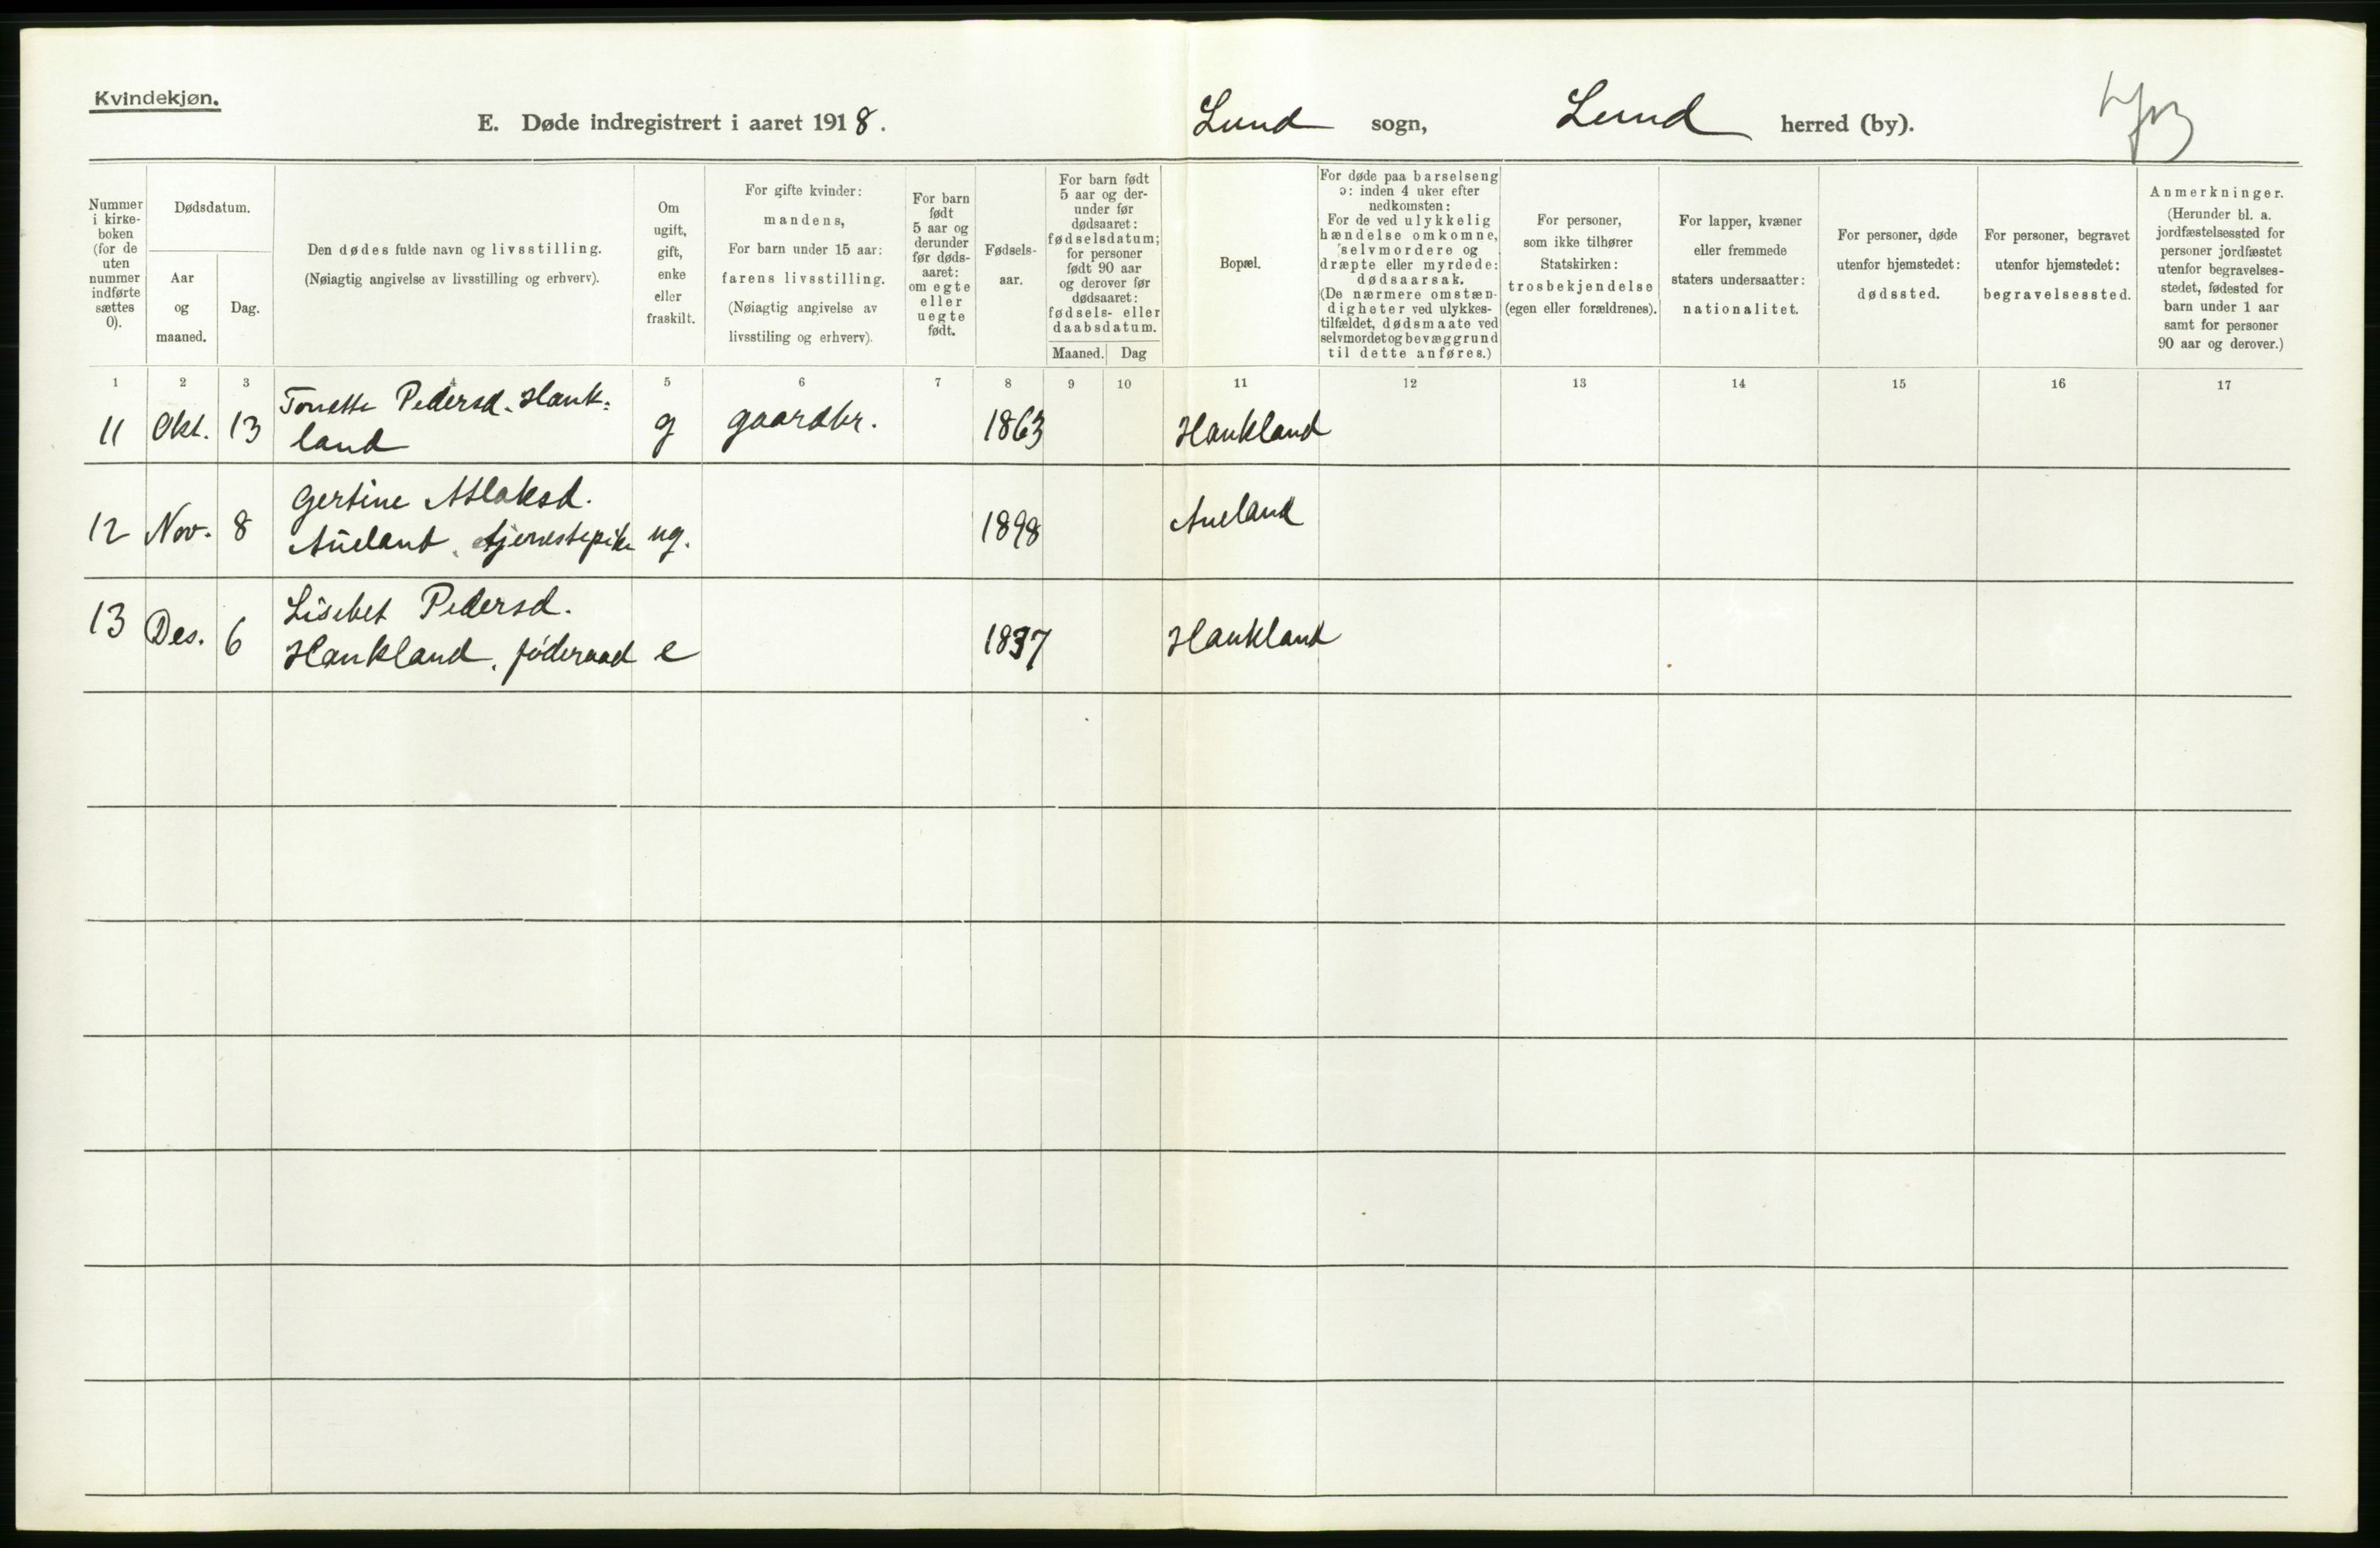 Kvindekjøn.
E. Døde indregistrert i aaret 1918.
Lund sogn, Lund herred (by).
Nummer i kirke-boken (for de uten nummer indførte sættes 0).
Dødsdatum.
Aar og maaned.
Dag.
Den dødes fulde navn og livsstilling.
(Nøiagtig angivelse av livsstilling og erhverv).
Om ugift, gift, enke eller fraskilt.
For gifte kvinder:
mandens,
For barn under 15 aar:
farens livsstilling.
(Nøiagtig angivelse av
livsstiling og erhverv).
For barn født 5 aar og derunder før døds-aaret: om egte eller uegte født.
Fødsels-aar.
For barn født 5 aar og der-under før dødsaaret: fødselsdatum; for personer født 90 aar og derover før dødsaaret: fødsels- eller daabsdatum.
Maaned. Dag
Bopæl.
For døde paa barselseng
ɔ: inden 4 uker efter
nedkomsten:
For de ved ulykkelig
hændelse omkomne,
selvmordere og
dræpte eller myrdede:
dødsaarsak.
(De nærmere omstæn-
digheter ved ulykkes-
tilfældet, dødsmaate ved
selvmordet og bevæggrund
til dette anføres.)
For personer,
som ikke tilhører
Statskirken:
trosbekjendelse
(egen eller forældrenes).
For lapper, kvæner
eller fremmede
staters undersaatter:
nationalitet.
For personer, døde
utenfor hjemstedet:
dødssted.
For personer, begravet
utenfor hjemstedet:
begravelsessted.
Anmerkninger.
(Herunder bl. a.
jordfæstelsessted for
personer jordfæstet
utenfor begravelses-
stedet, fødested for
barn under 1 aar
samt for personer
90 aar og derover.)
1 2 3 4 5 6 7 8 9 10 11 12 13 14 15 16 17
Tonette Pedersd. Hauk-
11 Okt. 13 land g gaardbr. 1863 Haukland
Gertine Atlaksd.
12 Nov. 8 Aueland, tjenestepike ug. 1898 Aueland
Lisebet Pedersd.
13 Des. 6 Haukland, føderaad e 1837 Haukland